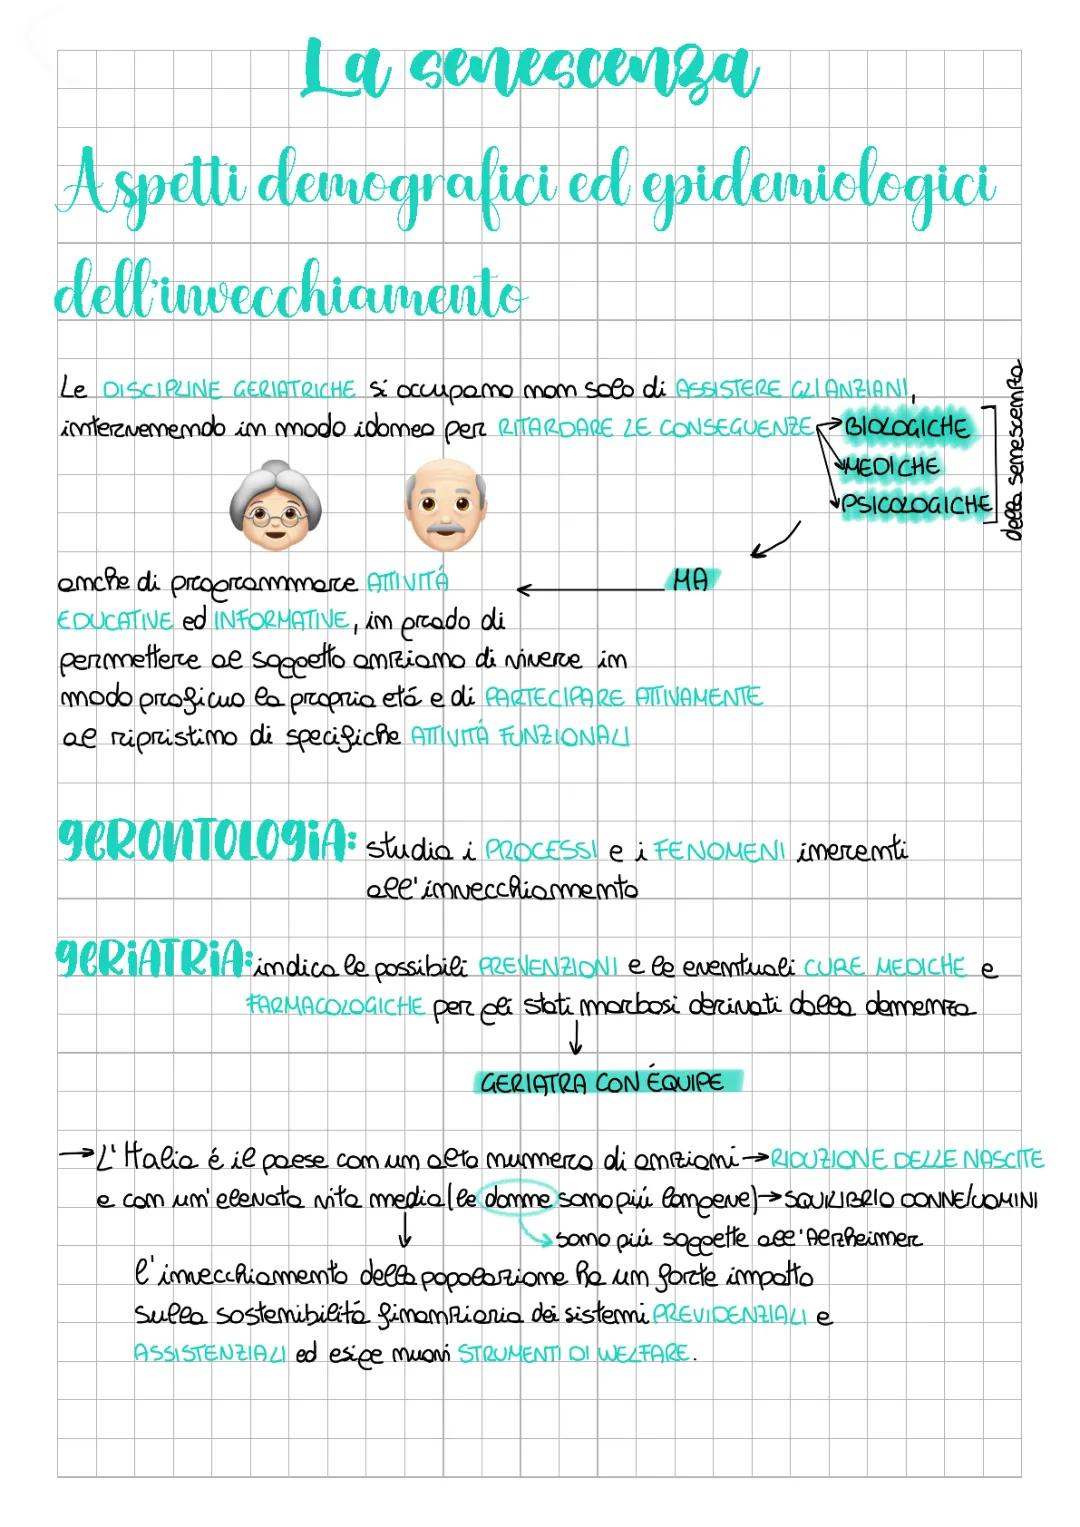 La senescenza
Aspetti demografici ed epidemiologici
dell'invecchiamento
Le DISCIPLINE GERIATRICHE si occupano non solo di ASSISTERE GLI ANZIANI,
intervenendo in modo idoneo per RITARDARE LE CONSEGUENZE → BIOLOGICHE
MEDICHE
PSICOLOGICHE
della senescenza
MA
anche di programmare ATTIVITÁ
EDUCATIVE ed INFORMATIVE, in grado di
permettere al soggetto anziano di vivere in
modo proficuo la propria etá e di PARTECIPARE ATTIVAMENTE
al ripristino di specifiche ATTIVITÁ FUNZIONALI
GERONTOLOGIA: studia i PROCESSI e i FENOMENI inerenti
all'invecchiamento
GERIATRIA: indica le possibili PREVENZIONI e le eventuali CURE MEDICHE e
FARMACOLOGICHE per gli stati morbosi derivati dalla demenza
GERIATRA CON ÉQUIPE
→ L'Italia é il paese con un alto numero di anziani → RIDUZIONE DELLE NASCITE
e con un'elevata vita media (le donne sono piú longeve) → SQUILIBRIO DONNE/UOMINI
sono piú soggette all'Alzheimer
l'invecchiamento della popolazione ha un forte impatto
sulla sostenibilitá finanziaria dei sistemi PREVIDENZIALI e
ASSISTENZIALI ed esige nuovi STRUMENTI DI WELFARE.